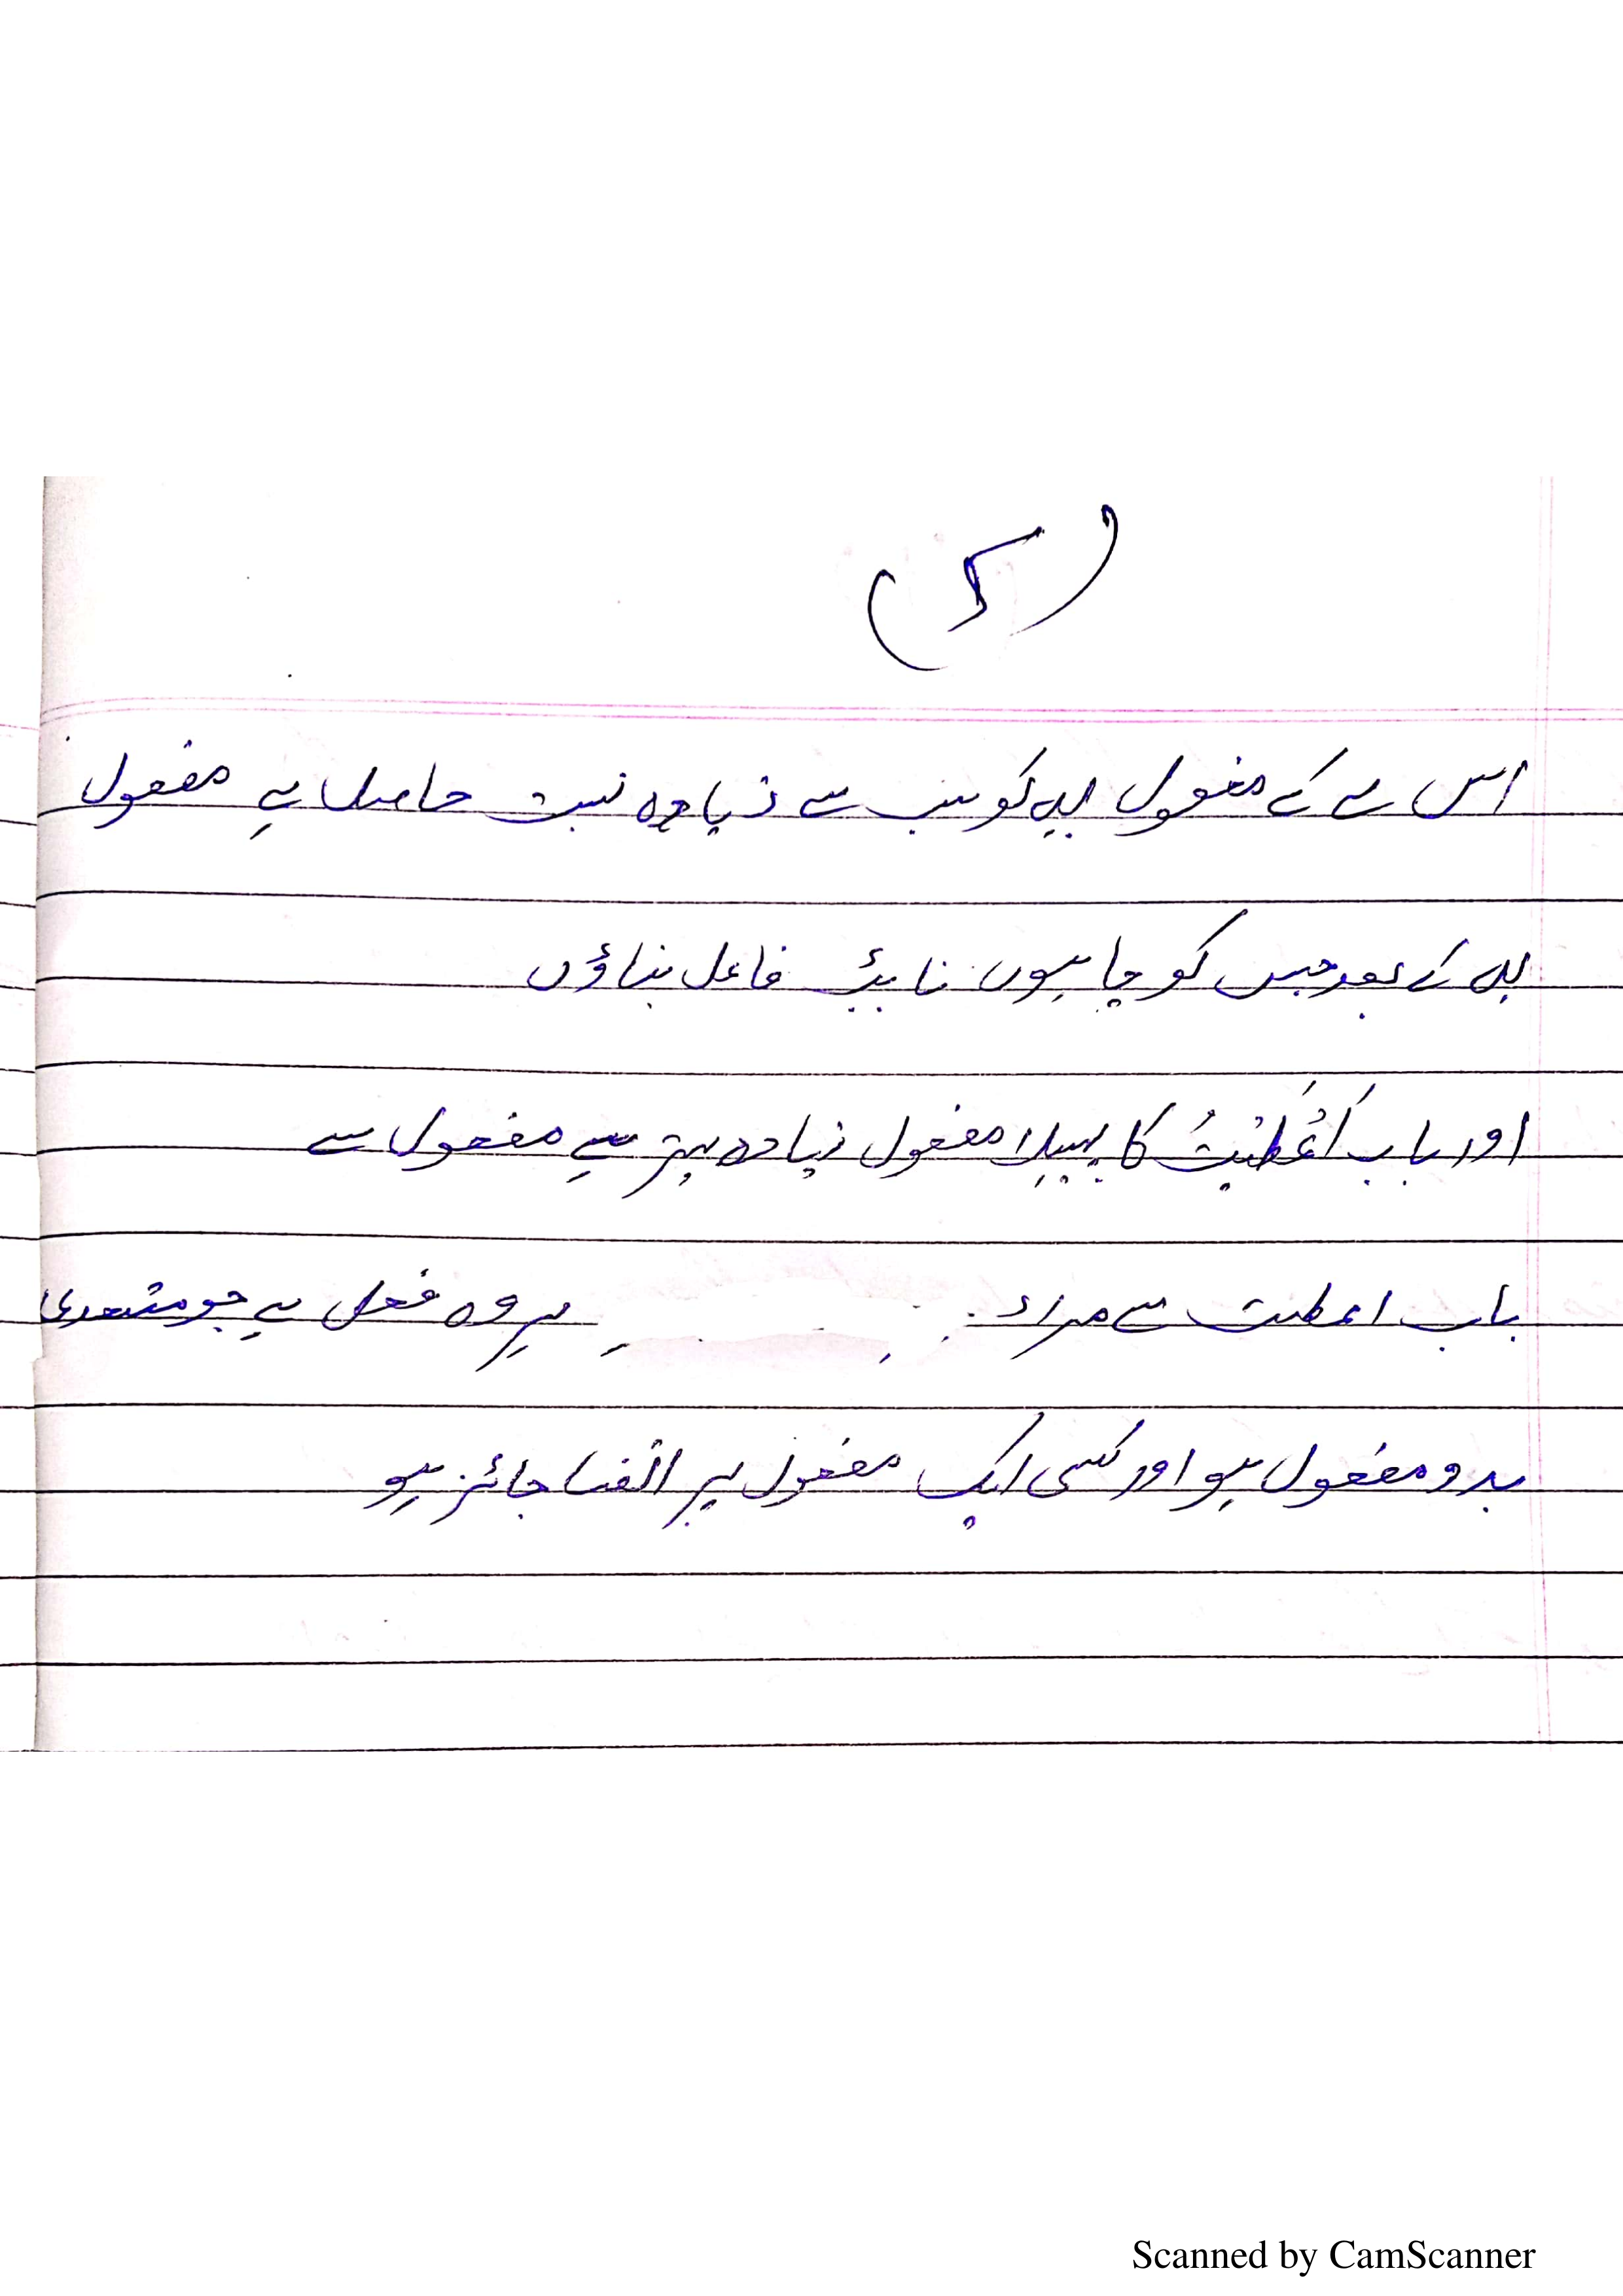 (5)
اس لے کے مفعول بہ کو سب سے زیادہ نسبت حاصل ہے مفعول
بہ کے بعد جس کو چاہوں نایٔب فاعل بناؤں
اور باب اَعْطَیْتُ کا پہلا مفعول زیادہ بہتر ہے مفعول سے
باب اعطیت سے مراد ہر وہ فعل ہے جو متعدی
بدو مفعول ہو اور کسی ایک مفعول پر اکتفا جائز ہو
Scanned by CamScanner